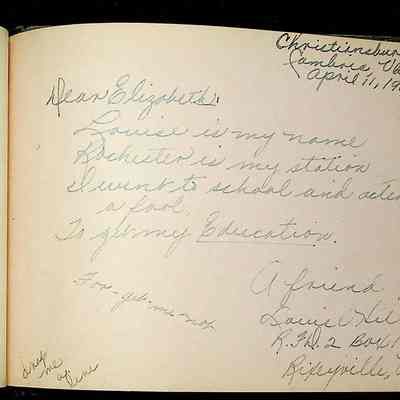 Christiansbur
Cambria, Va
April 11, 19
Dear Elizabeth:
Louise is my name
Rochester is my station
I went to school and acte
a fool.
To get my Education.
For-get-me-not
A friend
Louise Hil
R.F.D. 2 Box 1
Rixeyville,
drop
me
a
line